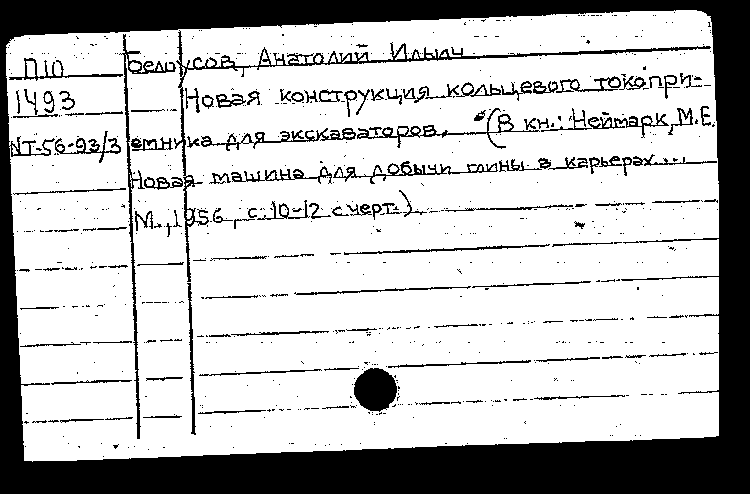 П10 Белоусов, Анатолий Ильич
1493 Новая конструкция кольцевого токопри-
NT-56-93/3 емника для экскаваторов. (В кн.: Неймарк, М.Е.
Новая машина для добычи глины в карьерах...
М., 1956, с. 10-12 с черт.)